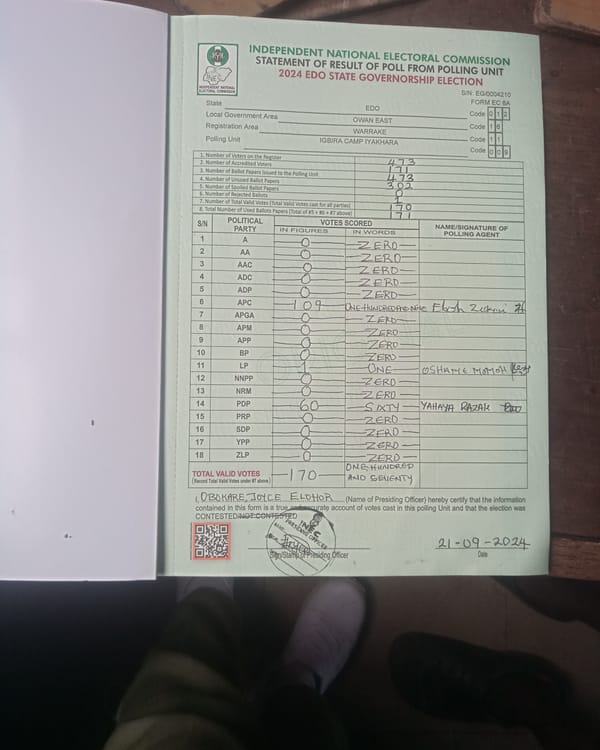 INDEPENDENT NATIONAL ELECTORAL COMMISSION
STATEMENT OF RESULT OF POLL FROM POLLING UNIT
2024 EDO STATE GOVERNORSHIP ELECTION
INEC
INDEPENDENT NATIONAL ELECTORAL COMMISSION
S/N: EG/0004210
FORM EC 8A
State EDO Code 0 1 2
Local Government Area OWAN EAST Code 1 6
Registration Area WARRAKE Code 1 1
Polling Unit IGBIRA CAMP IYAKHARA Code 0 0 9
1. Number of Voters on the Register 473
2. Number of Accredited Voters 171
3. Number of Ballot Papers Issued to the Polling Unit 473
4. Number of Unused Ballot Papers 302
5. Number of Spoiled Ballot Papers 0
6. Number of Rejected Ballots 1
7. Number of Total Valid Votes (Total Valid Votes cast for all parties) 170
8. Total Number of Used Ballots Papers (Total of #5 + #6 + #7 above) 171
S/N POLITICAL PARTY VOTES SCORED NAME/SIGNATURE OF POLLING AGENT
IN FIGURES IN WORDS
1 A 0 ZERO
2 AA 0 ZERO
3 AAC 0 ZERO
4 ADC 0 ZERO
5 ADP 0 ZERO
6 APC 109 ONE HUNDRED AND NINE
7 APGA 0 ZERO
8 APM 0 ZERO
9 APP 0 ZERO
10 BP 0 ZERO
11 LP 1 ONE OSHAME MOMOH
12 NNPP 0 ZERO
13 NRM 0 ZERO
14 PDP 60 SIXTY YAHAYA RAZAK
15 PRP 0 ZERO
16 SDP 0 ZERO
17 YPP 0 ZERO
18 ZLP 0 ZERO
TOTAL VALID VOTES 170 ONE HUNDRED AND SEVENTY
(Record Total Valid Votes under #7 above)
I, OBOKARE, JOYCE ELOHOR (Name of Presiding Officer) hereby certify that the information
contained in this form is a true and accurate account of votes cast in this polling Unit and that the election was
CONTESTED/NOT CONTESTED
INEC
PRESIDING OFFICER
Sign/Stamp of Presiding Officer
21-09-2024
Date